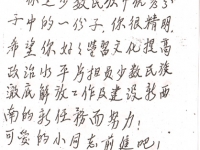 子中的一份子,你很精明,
希望你好好学习文化提高
政治水平为担负少数民族
澈底解放工作及建设新西
南的新任务而努力!
可爱的小同志前进吧!